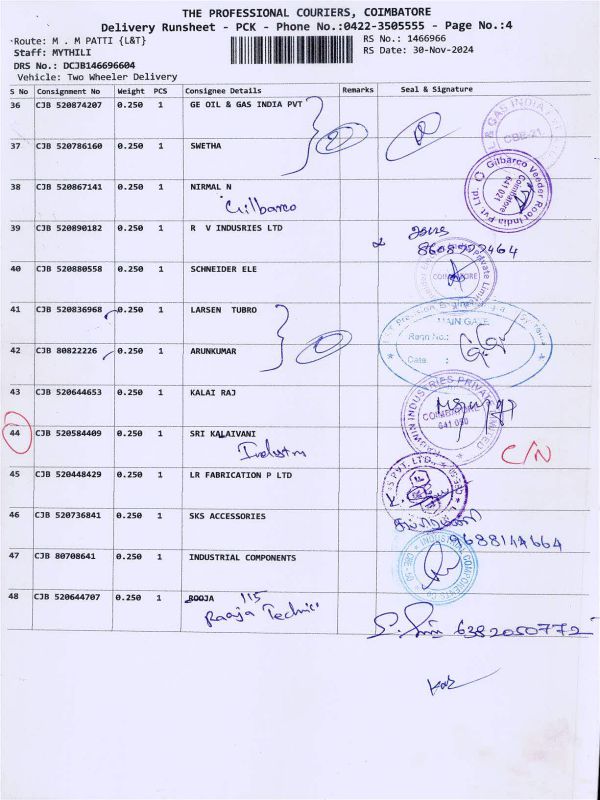 THE PROFESSIONAL COURIERS, COIMBATORE
Delivery Runsheet - PCK - Phone No.:0422-3505555 - Page No.:4
Route: M . M PATTI {L&T}
RS No.: 1466966
Staff: MYTHILI
RS Date: 30-Nov-2024
DRS No.: DCJB146696604
Vehicle: Two Wheeler Delivery
S No Consignment No Weight PCS Consignee Details Remarks Seal & Signature
36 CJB 520874207 0.250 1 GE OIL & GAS INDIA PVT
2
CBE-21
37 CJB 520786160 0.250 1 SWETHA
Gilbarco Veeder Root India Pvt. Ltd.
Coimbatore
641 021
38 CJB 520867141 0.250 1 NIRMAL N
Gilbarco
39 CJB 520890182 0.250 1 R V INDUSRIES LTD
40 CJB 520880558 0.250 1 SCHNEIDER ELE
COIMBATORE
41 CJB 520836968 0.250 1 LARSEN TUBRO
MAIN GATE
Regn No.:
Date :
42 CJB 80822226 0.250 1 ARUNKUMAR
2
43 CJB 520644653 0.250 1 KALAI RAJ
INDUSTRIES PRIVATE LIMITED
COIMBATORE
641 050
44 CJB 520584409 0.250 1 SRI KALAIVANI
C/N
45 CJB 520448429 0.250 1 LR FABRICATION P LTD
46 CJB 520736841 0.250 1 SKS ACCESSORIES
47 CJB 80708641 0.250 1 INDUSTRIAL COMPONENTS
INDUSTRIAL COMPONENTS CO
48 CJB 520644707 0.250 1 ROOJA 115
Raaja Technic
6382050772